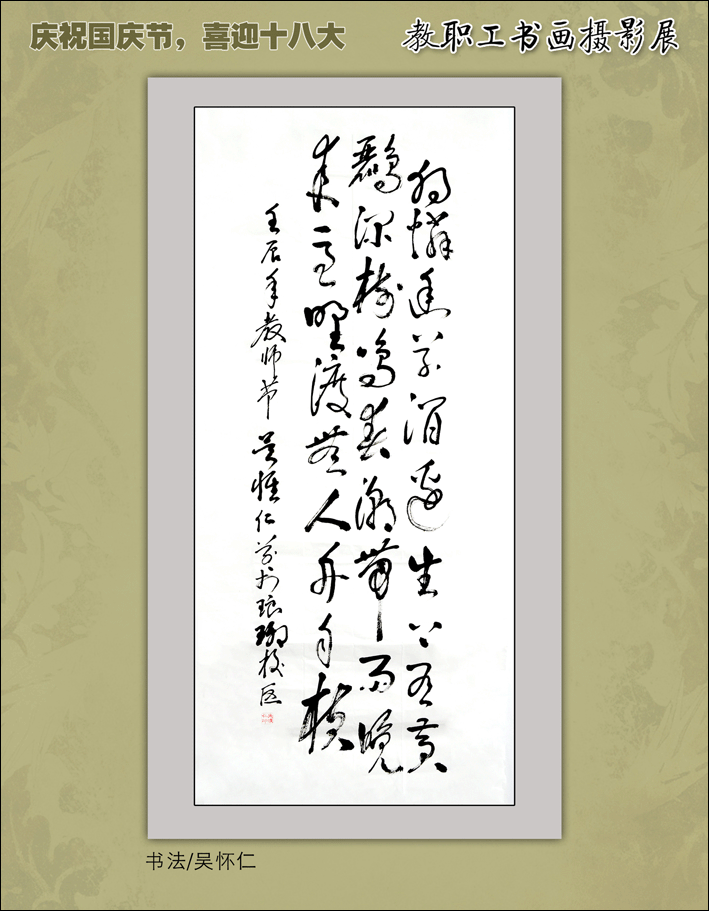 庆祝国庆节，喜迎十八大
教职工书画摄影展
独憐幽草涧边生上有黄
鸝深树鸣春潮带雨晚
来急野渡無人舟自横
壬辰年教师节 吴怀仁写于琅琊校区
书法/吴怀仁